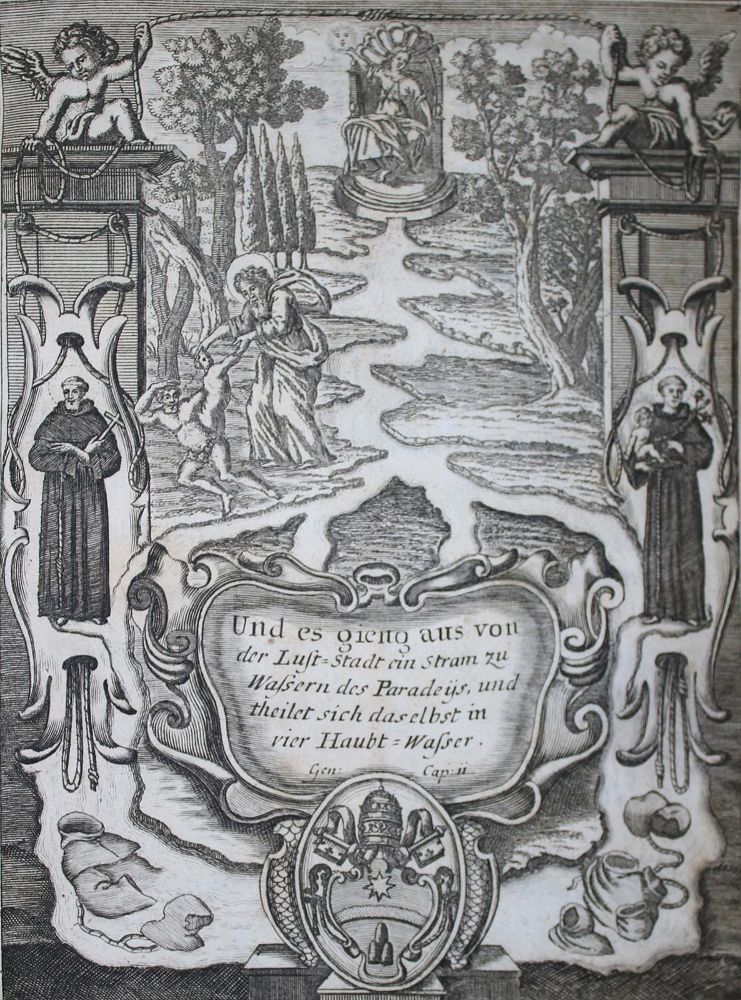 Und es gieng aus von
der Lust=Stadt ein Stram zu
Waſsern des Paradeÿs, und
theilet sich daselbst in
vier Haubt=Waſser.
Gen: Cap: ii